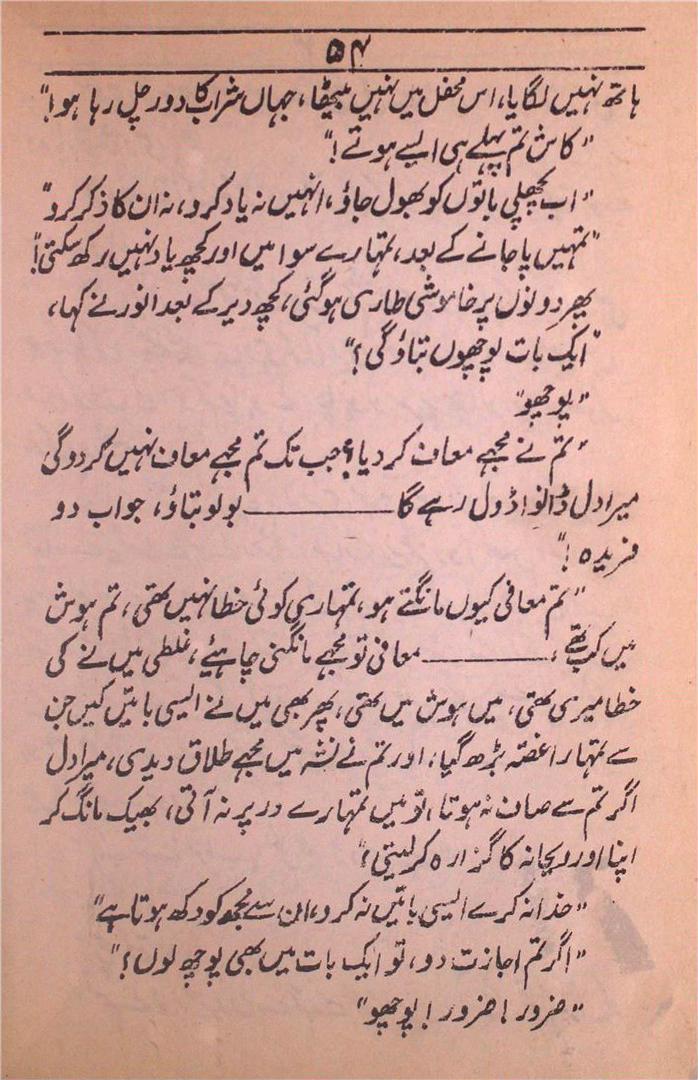 ۵۴
ہاتھ نہیں لگایا، اس محفل میں نہیں بیٹھا، جہاں شراب کا دور چل رہا ہو!"
"کاش تم پہلے ہی ایسے ہوتے!"
"اب پچھلی باتوں کو بھول جاؤ، انہیں نہ یاد کرو، نہ ان کا ذکر کرو"
"تمہیں پا جانے کے بعد، تمہارے سوا میں اور کچھ یاد نہیں رکھ سکتی!"
پھر دونوں پر خاموشی طاری ہو گئی، کچھ دیر کے بعد انور نے کہا،
"ایک بات پوچھوں بتاؤ گی؟"
"پوچھو"
"تم نے مجھے معاف کر دیا؟ جب تک تم مجھے معاف نہیں کر دو گی
میرا دل ڈانواڈول رہے گا ــــــــــ بولو بتاؤ، جواب دو
فریدہ!"
"تم معافی کیوں مانگتے ہو، تمہاری کوئی خطا نہیں تھی، تم ہوش
میں کب تھے، ــــــــــ معافی تو مجھے مانگنی چاہئیے، غلطی میں نے کی
خطا میری تھی، میں ہوش میں تھی، پھر بھی میں نے ایسی باتیں کیں جن
سے تمہارا غصہ بڑھ گیا، اور تم نے نشہ میں مجھے طلاق دیدی، میرا دل
اگر تم سے صاف نہ ہوتا، تو میں تمہارے در پر نہ آتی، بھیک مانگ کر
اپنا اور ریحانہ کا گزارہ کر لیتی؛"
"خدا نہ کرے ایسی باتیں نہ کرو، ان سے مجھ کو دکھ ہوتا ہے"
"اگر تم اجازت دو، تو ایک بات میں بھی پوچھ لوں؟"
"ضرور! ضرور! پوچھو"